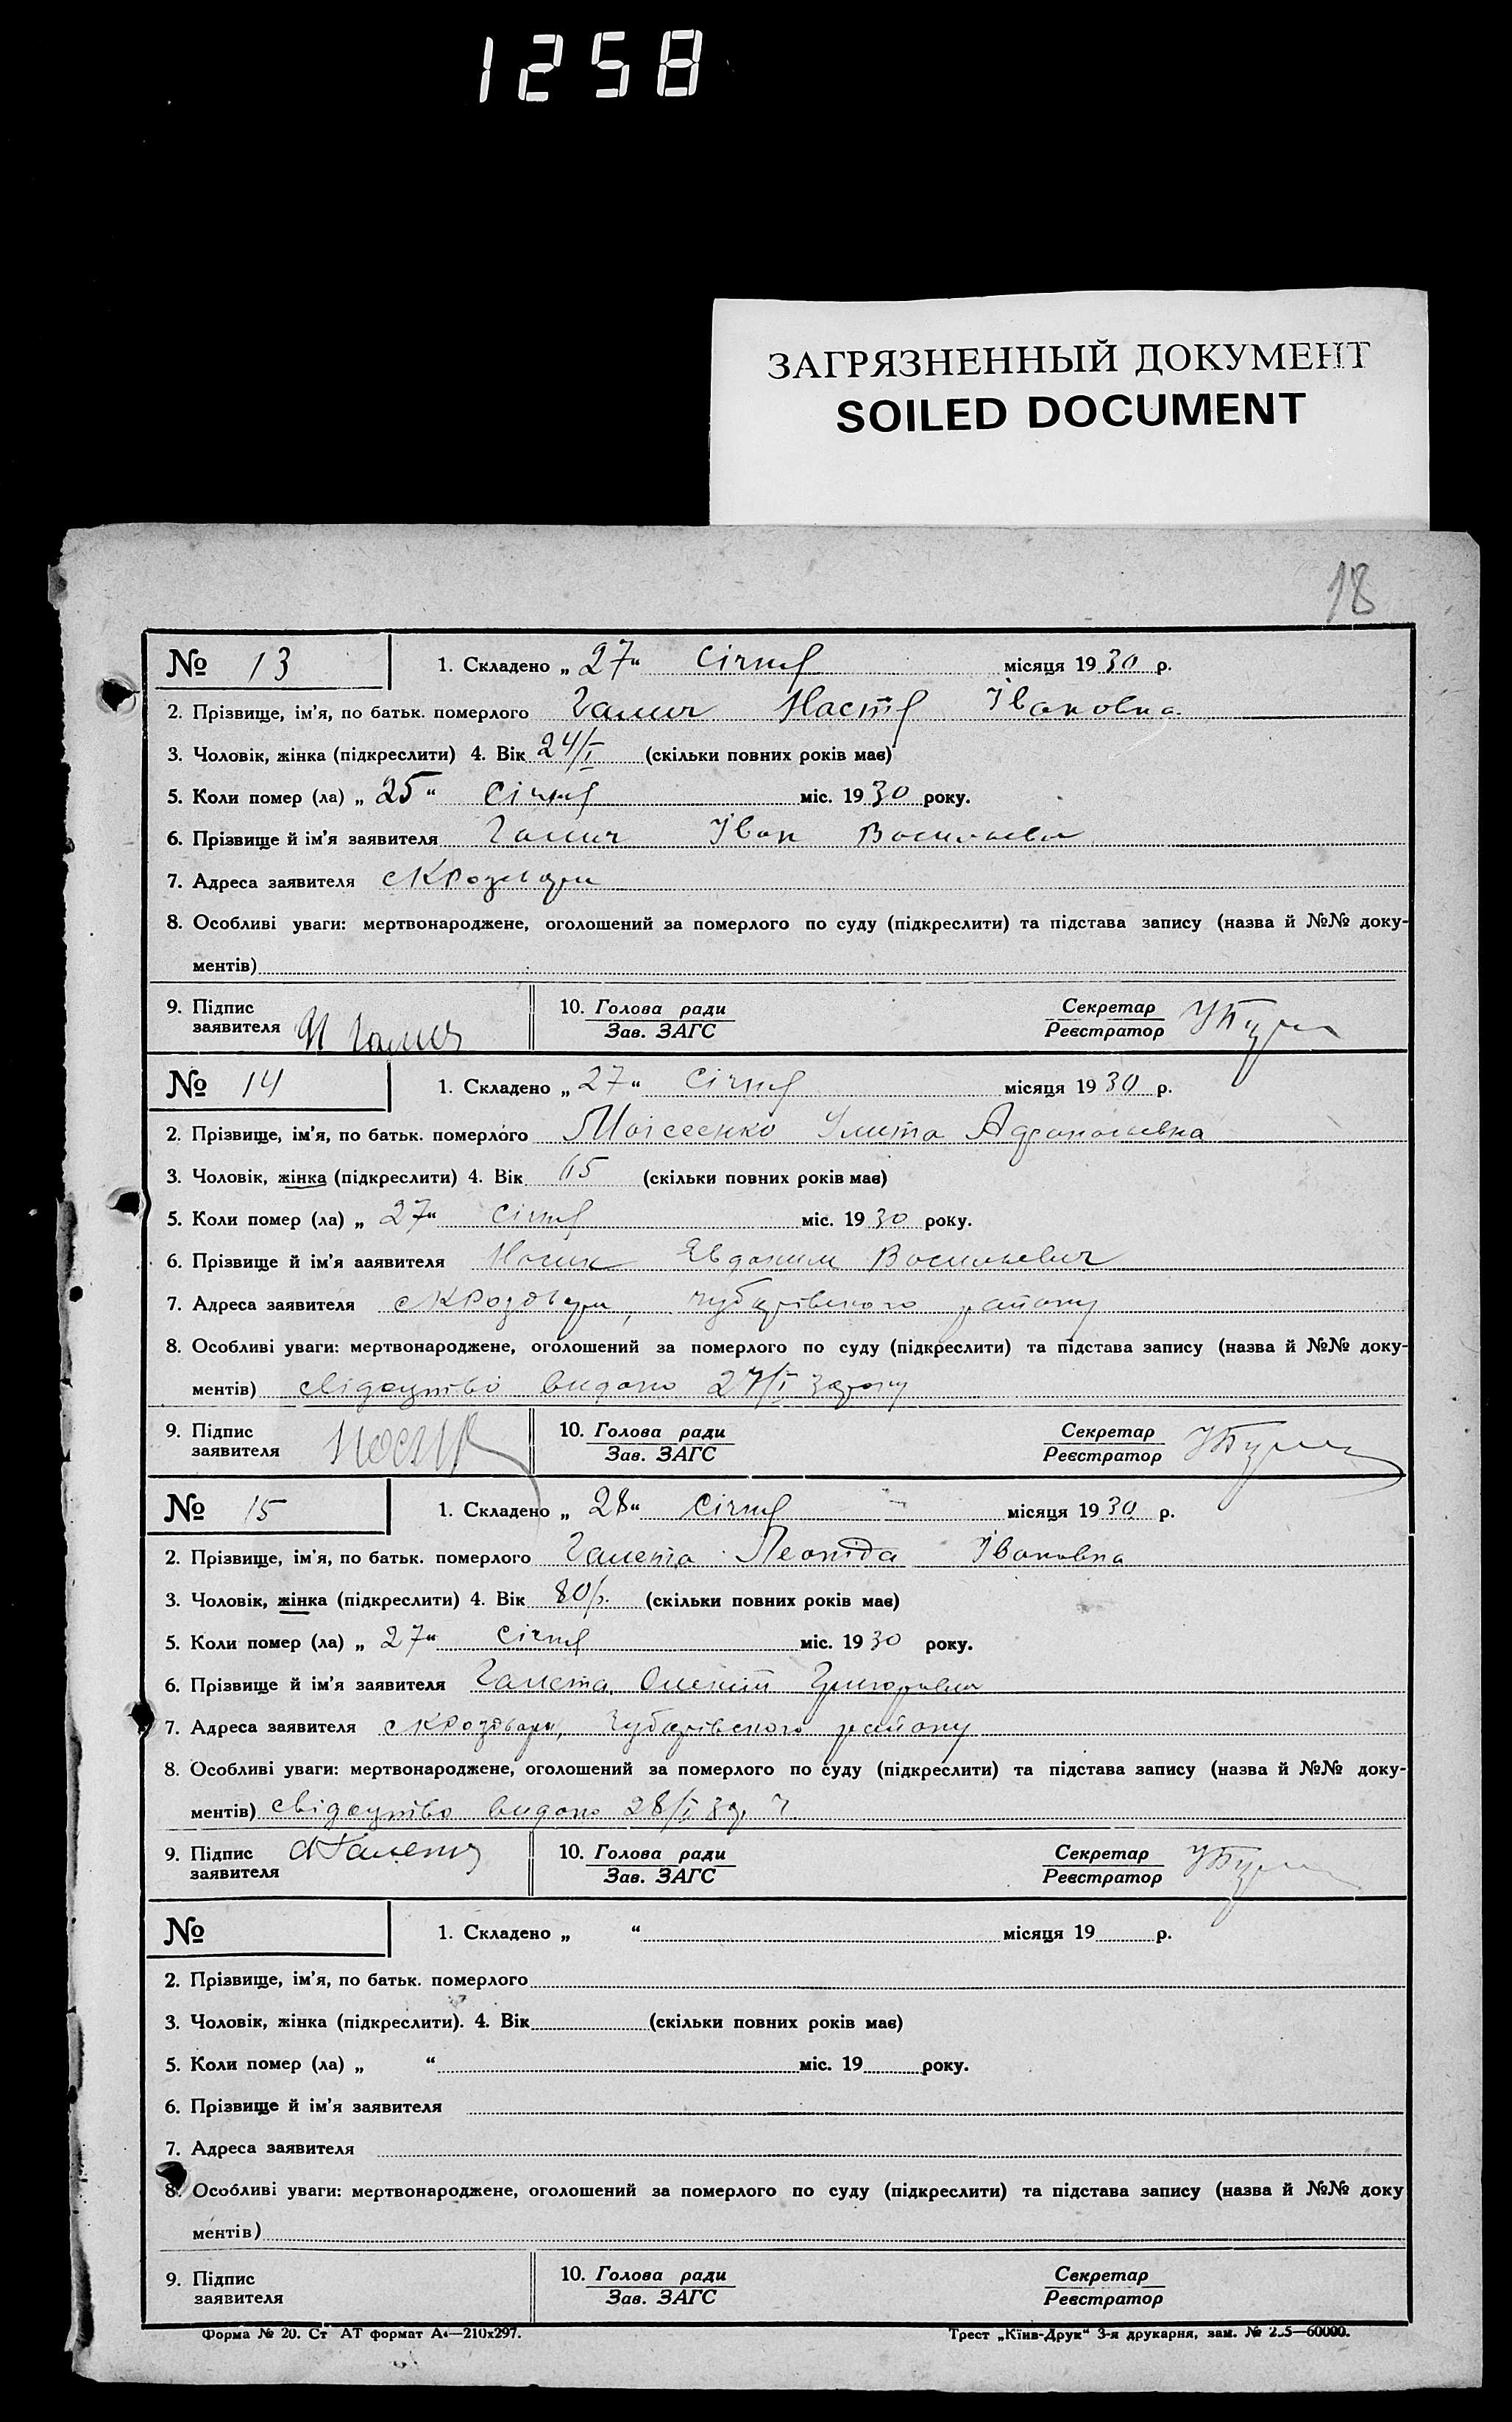 1258
ЗАГРЯЗНЕННЫЙ ДОКУМЕНТ
SOILED DOCUMENT
18
№ 13 1. Складено „ 27 “ січня місяця 1930 р.
2. Прізвище, ім’я, по батьк. померлого Галич Настя Івановна
3. Чоловік, жінка (підкреслити) 4. Вік 24/I (скільки повних років має)
5. Коли помер (ла) „ 25 “ Січня міс. 1930 року.
6. Прізвище й ім’я заявителя Галич Іван
7. Адреса заявителя
8. Особливі уваги: мертвонароджене, оголошений за померлого по суду (підкреслити) та підстава запису (назва й №№ доку-
ментів)
9. Підпис заявителя И Галич 10. Голова ради Зав. ЗАГС Секретар Реєстратор
№ 14 1. Складено „ 27 “ січня місяця 1930 р.
2. Прізвище, ім’я, по батьк. померлого Моісеенко Улита
3. Чоловік, жінка (підкреслити) 4. Вік (скільки повних років має)
5. Коли помер (ла) „ 27 “ січня міс. 1930 року.
6. Прізвище й ім’я заявителя Носик Евдоким Васильевич
7. Адреса заявителя Чубарівського району
8. Особливі уваги: мертвонароджене, оголошений за померлого по суду (підкреслити) та підстава запису (назва й №№ доку-
ментів) свідоцтво видано 27/I 30 року
9. Підпис заявителя Носик 10. Голова ради Зав. ЗАГС Секретар Реєстратор
№ 15 1. Складено „ 28 “ січня місяця 1930 р.
2. Прізвище, ім’я, по батьк. померлого Галета Івановна
3. Чоловік, жінка (підкреслити) 4. Вік 80 р. (скільки повних років має)
5. Коли помер (ла) „ 27 “ січня міс. 1930 року.
6. Прізвище й ім’я заявителя Галета
7. Адреса заявителя Чубарівського району
8. Особливі уваги: мертвонароджене, оголошений за померлого по суду (підкреслити) та підстава запису (назва й №№ доку-
ментів) свідоцтво видано 28/I
9. Підпис заявителя Галета 10. Голова ради Зав. ЗАГС Секретар Реєстратор
№ 1. Складено „ “ місяця 19 р.
2. Прізвище, ім’я, по батьк. померлого
3. Чоловік, жінка (підкреслити). 4. Вік (скільки повних років має)
5. Коли помер (ла) „ “ міс. 19 року.
6. Прізвище й ім’я заявителя
7. Адреса заявителя
8. Особливі уваги: мертвонароджене, оголошений за померлого по суду (підкреслити) та підстава запису (назва й №№ доку
ментів)
9. Підпис заявителя 10. Голова ради Зав. ЗАГС Секретар Реєстратор
Форма № 20. Ст АТ формат А4—210х297. Трест „Київ-Друк“ 3-я друкарня, зам. №